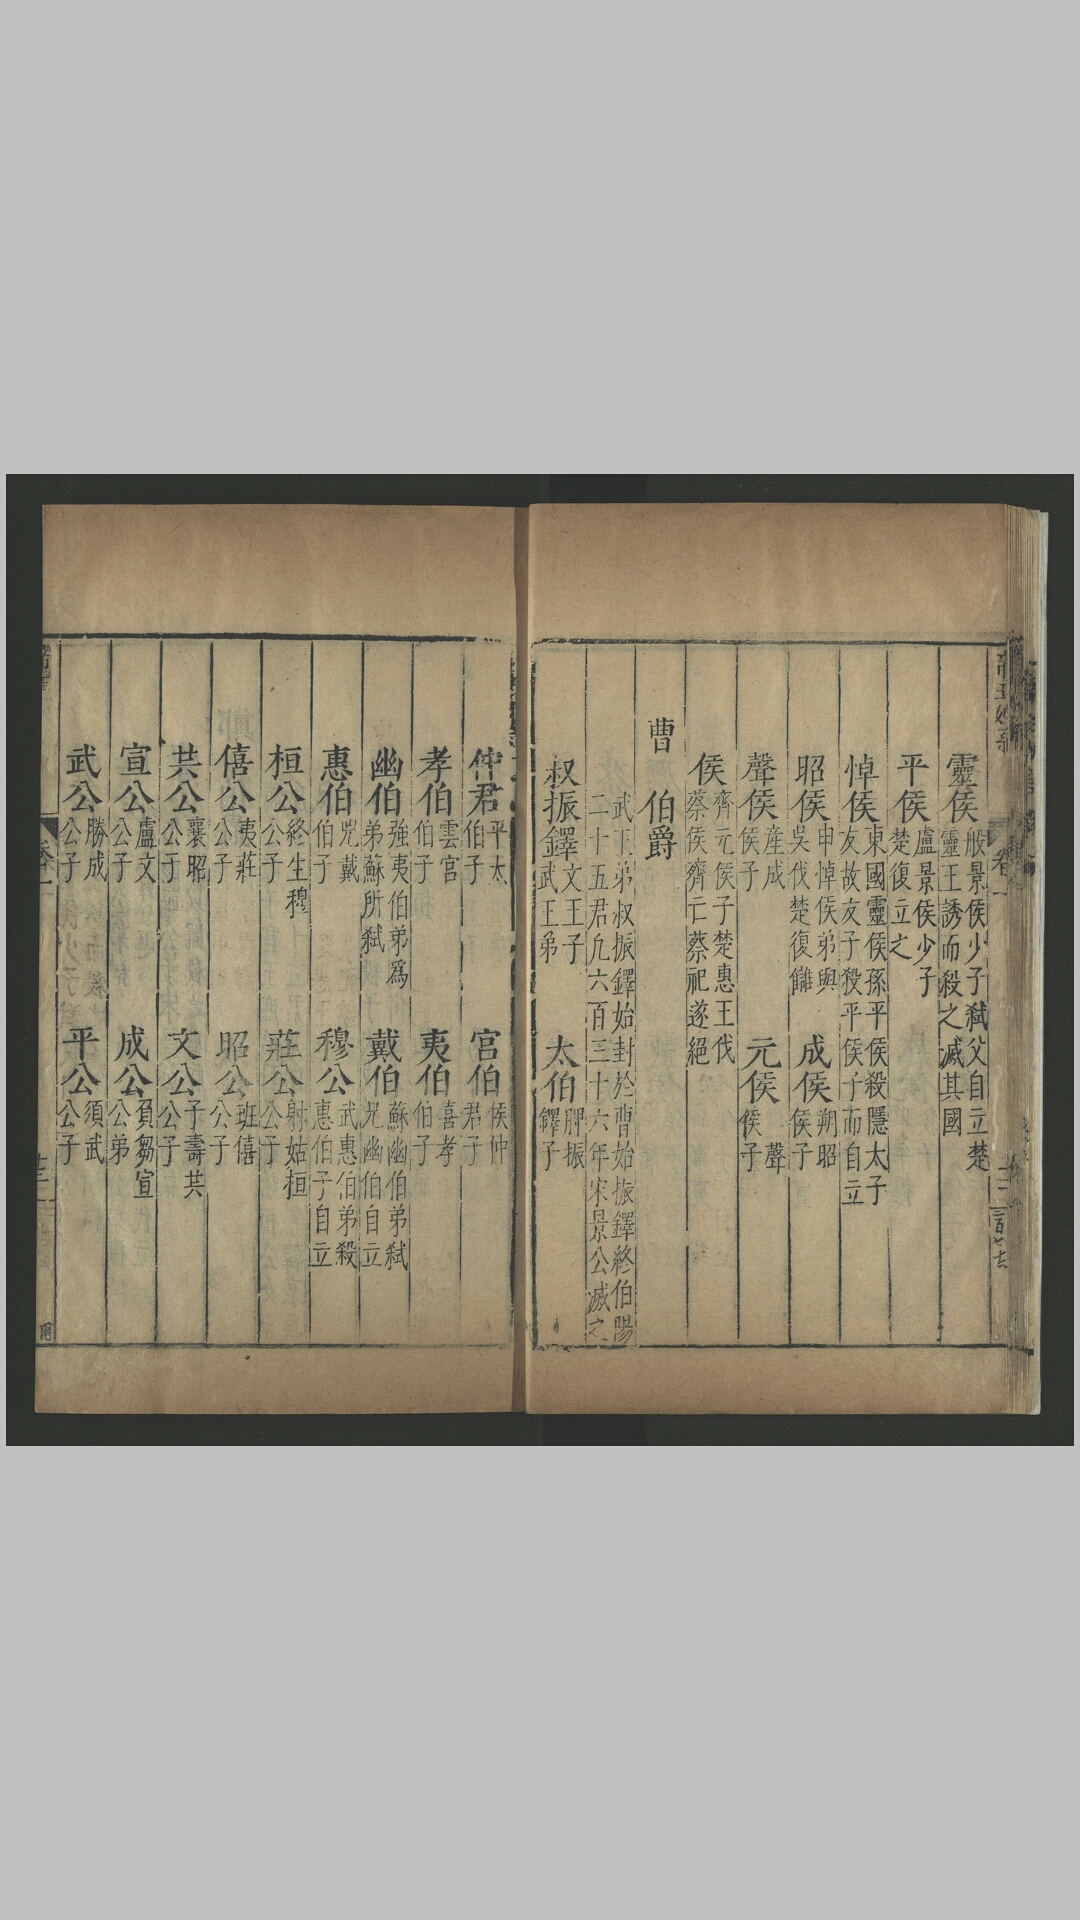 靈侯 般景侯少子弑父自立楚
靈王誘而殺之滅其國
平侯 盧景侯少子
楚復立之
悼侯 東國靈侯孫平侯殺隱太子
友故友子殺平侯子而自立
昭侯 申悼侯弟與
吳伐楚復讎
成侯 朔昭
侯子
聲侯 產成
侯子
元侯 聲
侯子
侯 齊元侯子楚惠王伐
蔡侯齊亡蔡祀遂絕
曹 伯爵
武王弟叔振鐸始封於曹始振鐸終伯陽
二十五君凢六百三十六年宋景公滅之
叔振鐸 文王子
武王弟
太伯 脾振
鐸子
仲君 平太
伯子
宮伯 侯仲
君子
孝伯 雲宮
伯子
夷伯 喜孝
伯子
幽伯 強夷伯弟爲
弟蘇所弑
戴伯 蘇幽伯弟弑
兄幽伯自立
惠伯 兕戴
伯子
穆公 武惠伯弟殺
惠伯子自立
桓公 終生穆
公子
莊公 射姑桓
公子
僖公 夷莊
公子
昭公 班僖
公子
共公 襄昭
公子
文公 子壽共
公子
宣公 盧文
公子
成公 負芻宣
公弟
武公 勝成
公子
平公 須武
公子
卷一